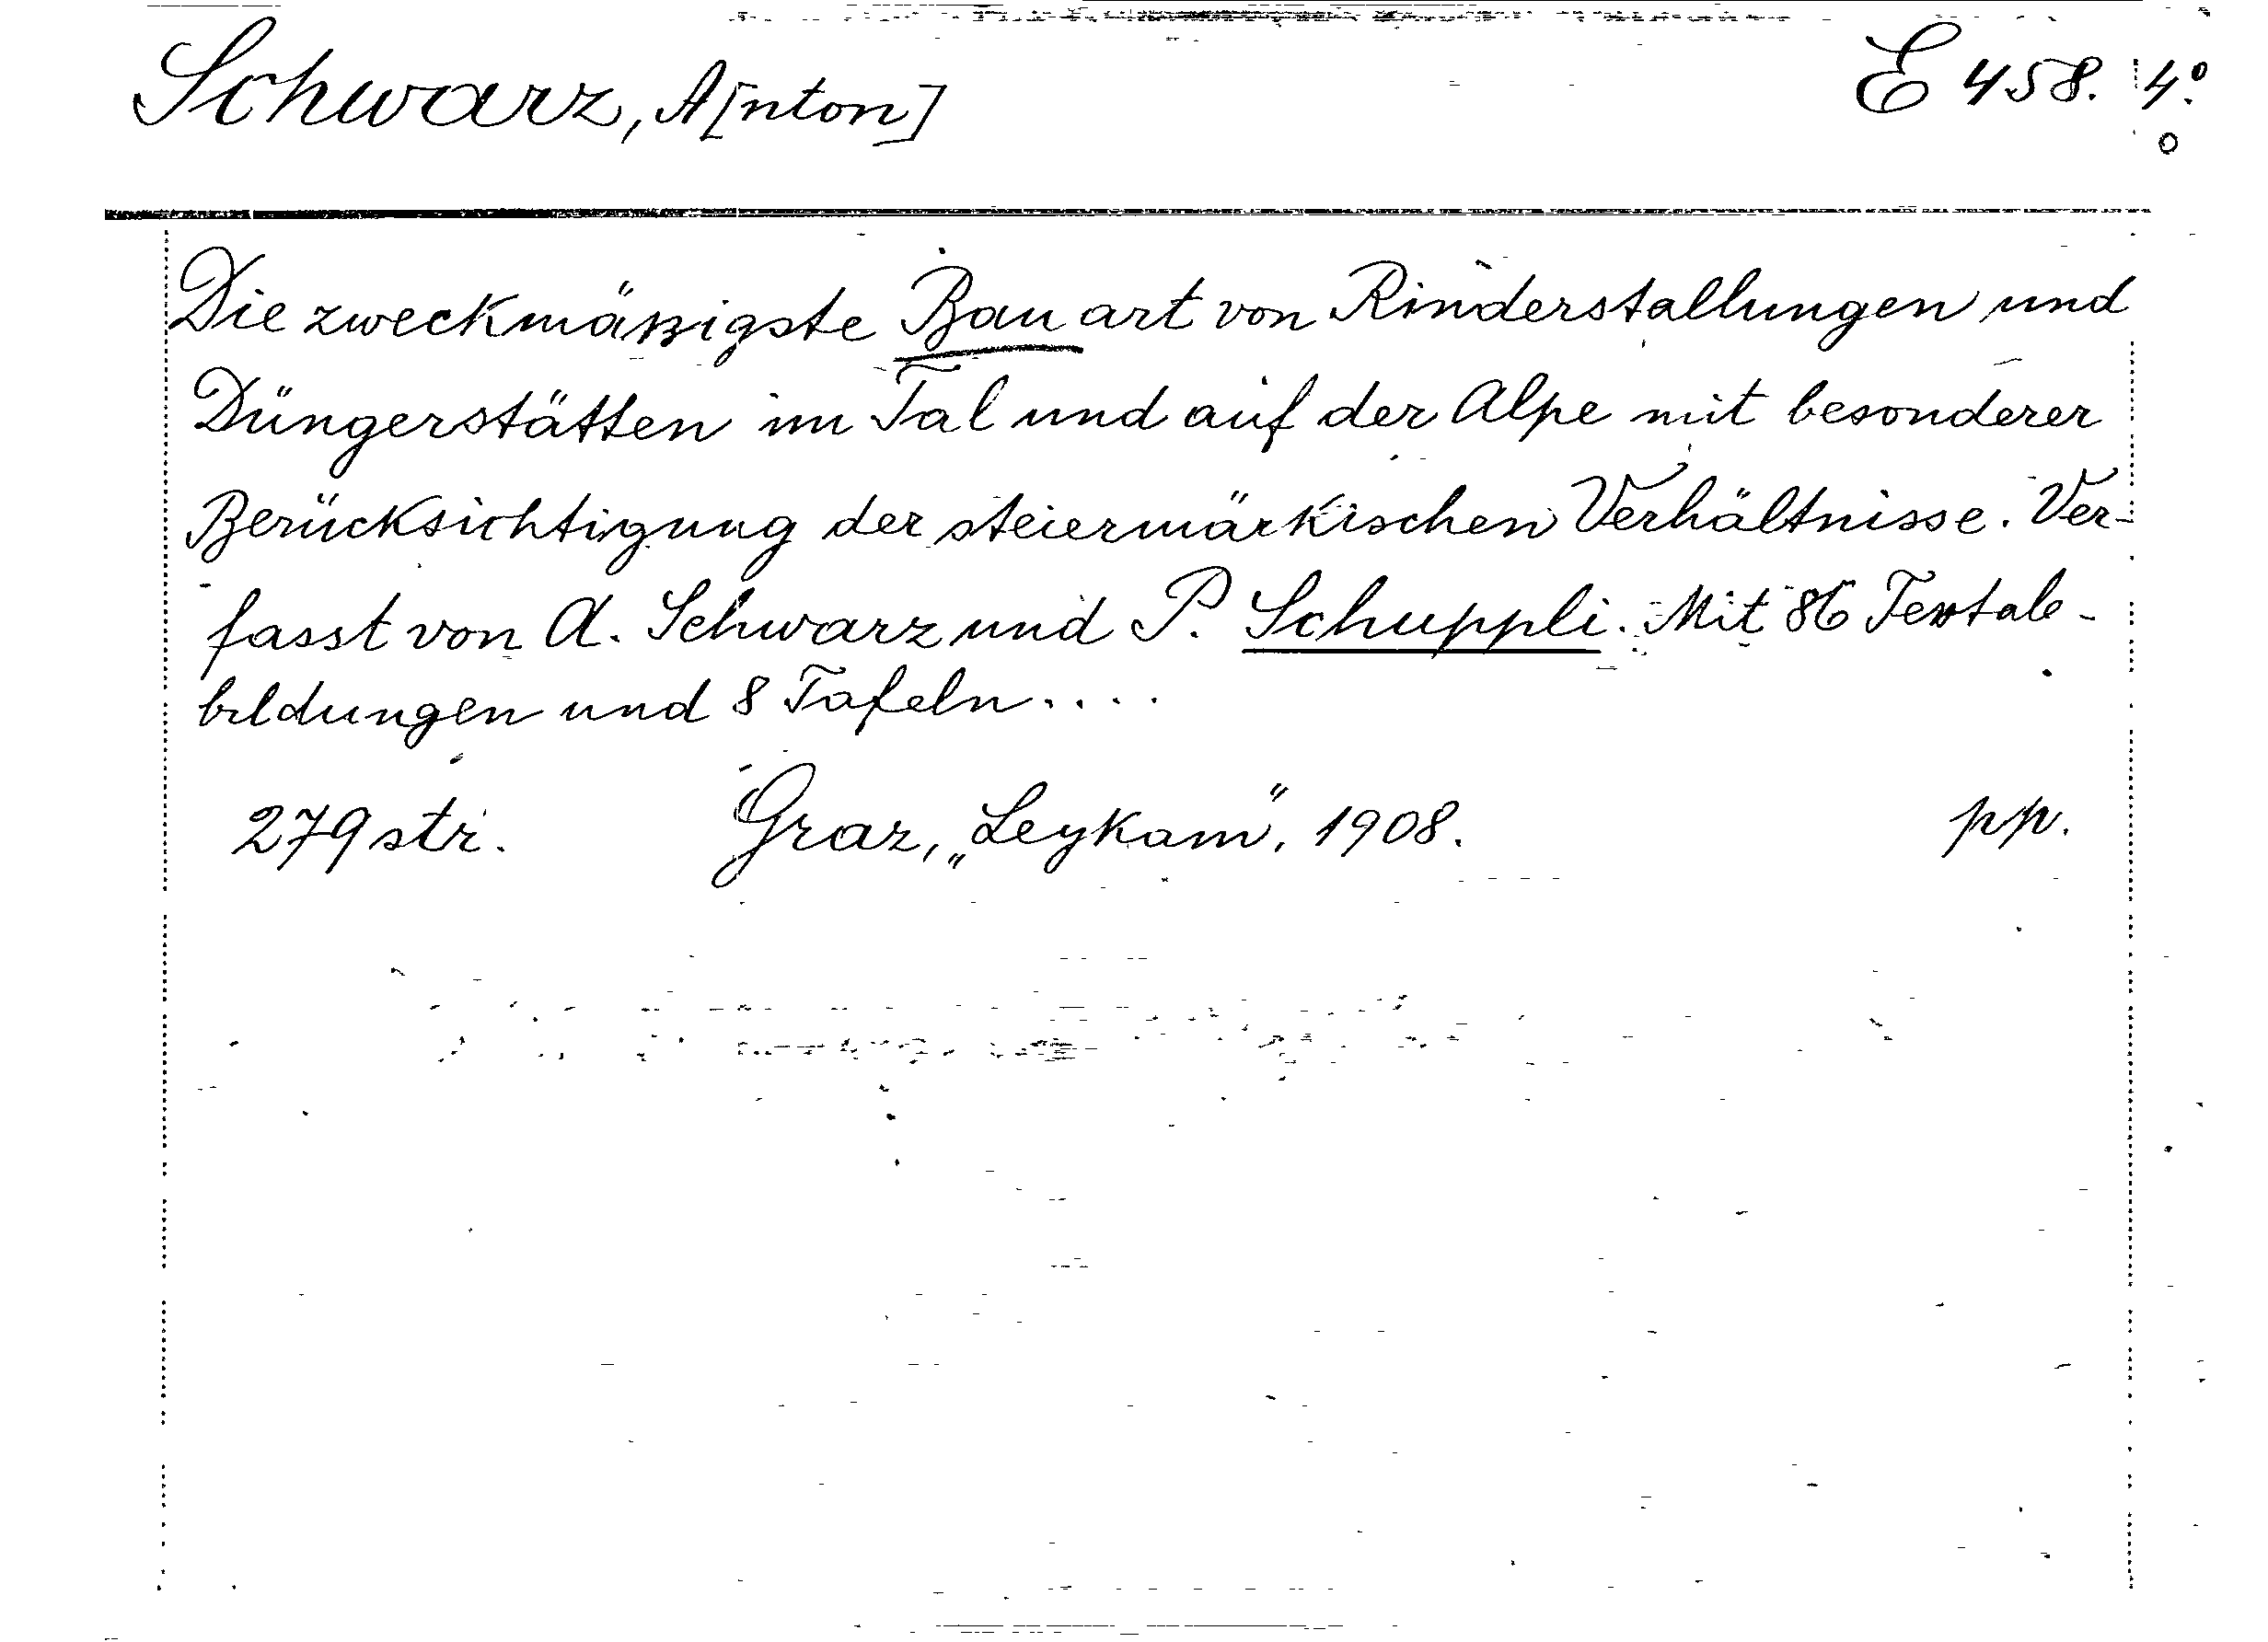 Schwarz, A[nton]
E 458. 4º.
Die zweckmäßigste Bauart von Rinderstallungen und
Düngerstätten im Tal und auf der Alpe mit besonderer
Berücksichtigung der steiermärkischen Verhältnisse. Ver-
fasst von A. Schwarz und P. Schuppli. Mit 86 Textab-
bildungen und 8 Tafeln....
279 str. Graz, „Leykam", 1908. pp.